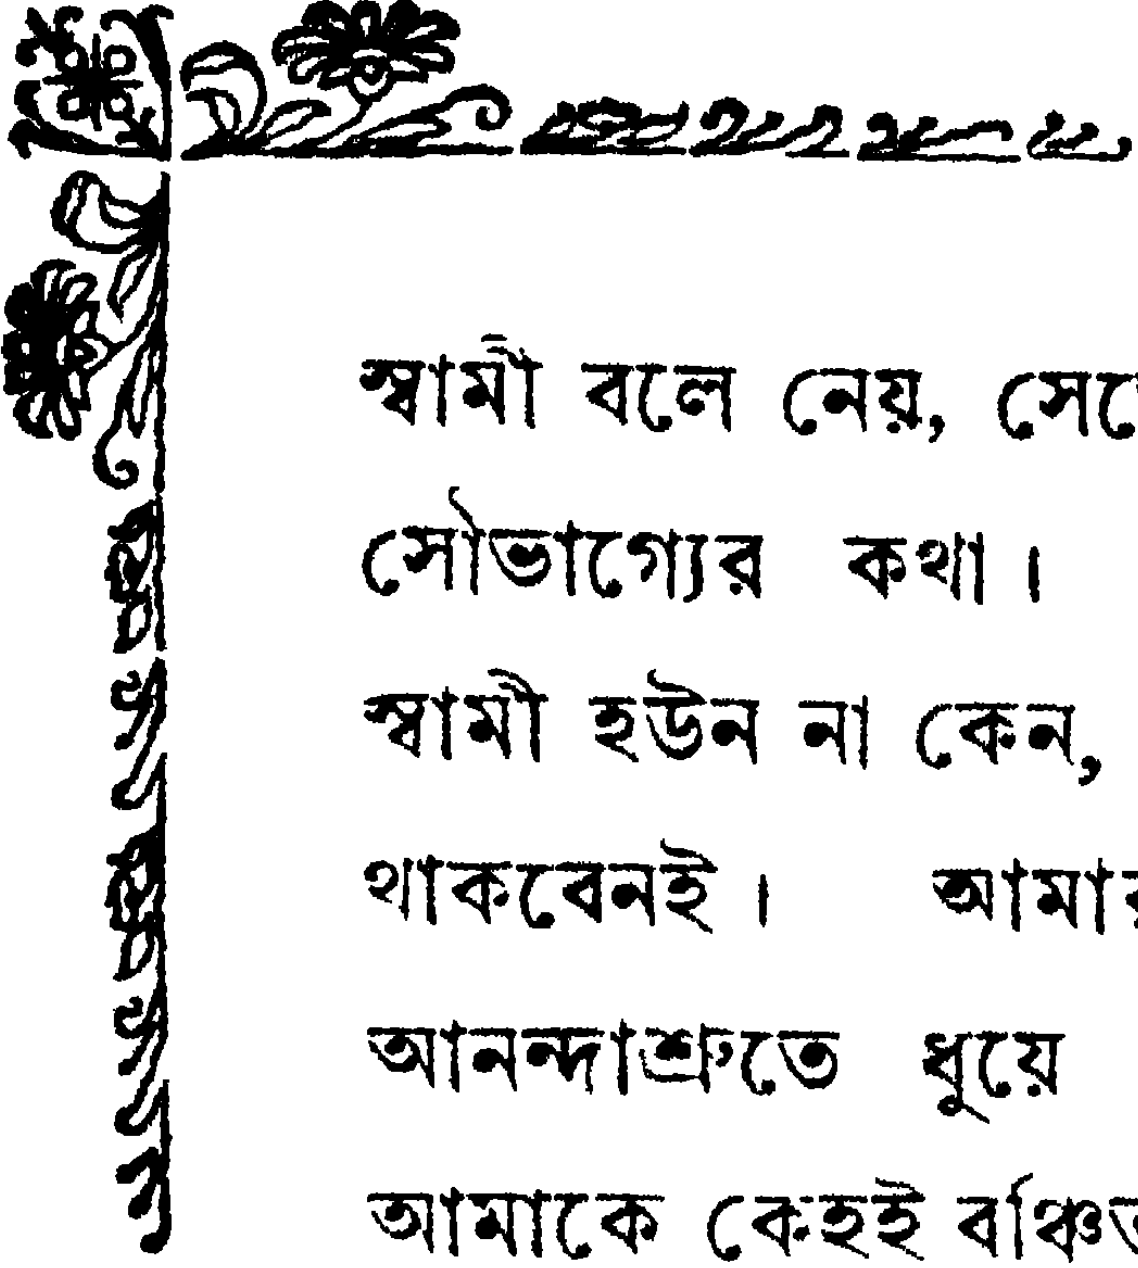 স্বামী বলে নেয়,
সৌভাগ্যের কথা ।
স্বামী হউন না কেন,
থাকবেনই ।
আনন্দাশ্রুতে ধুয়ে
আমাকে কেহই